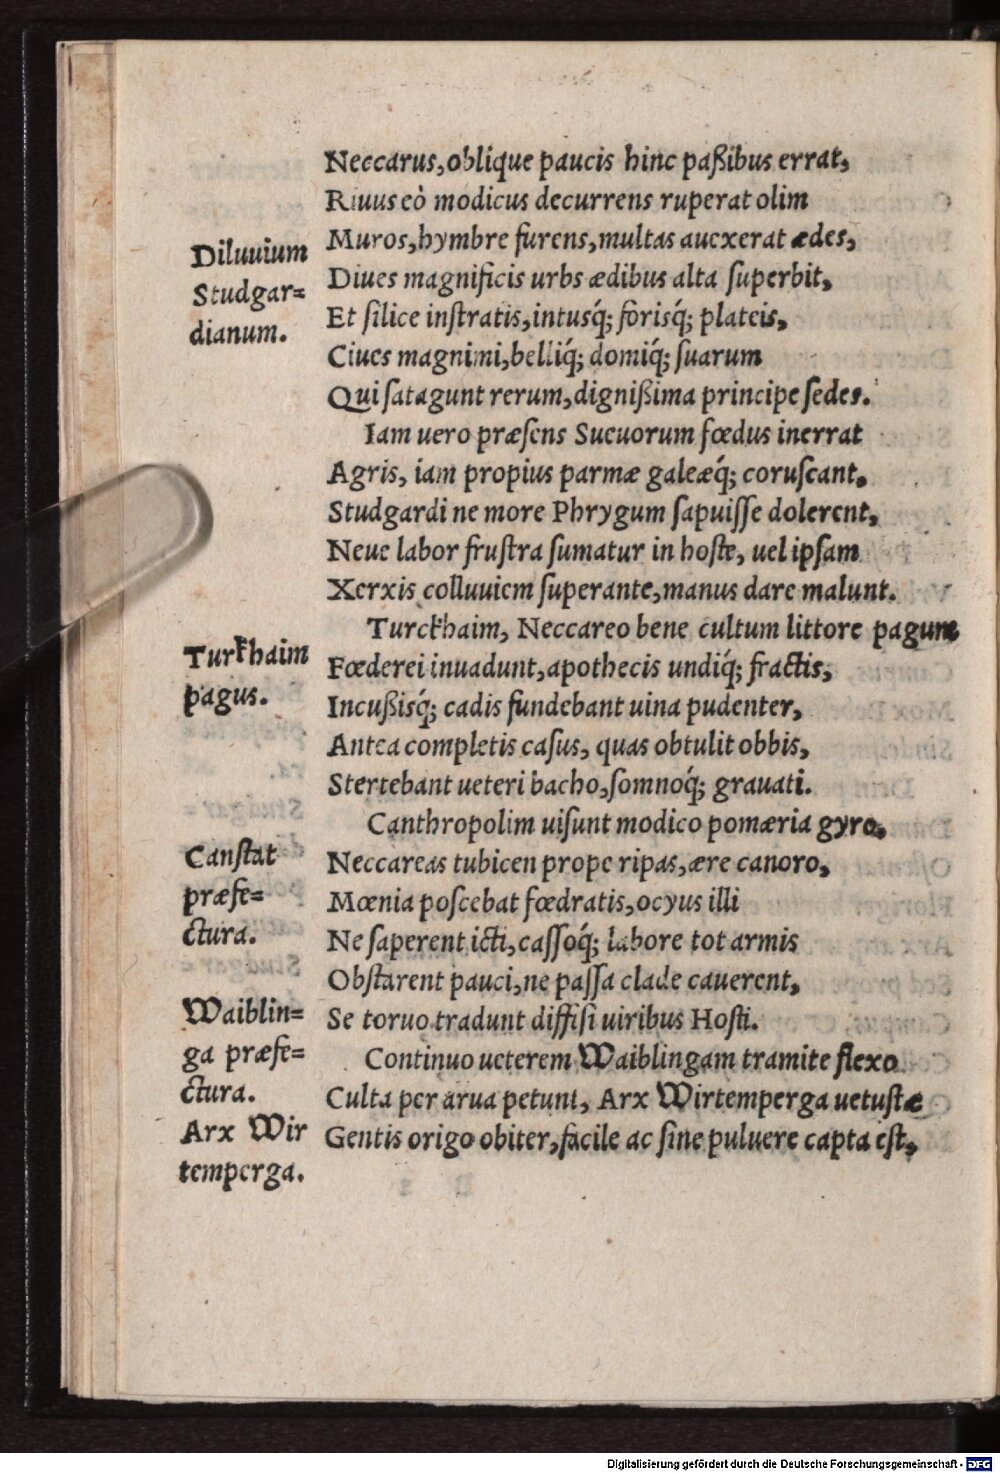 Neccarus, oblique paucis hinc paßibus errat,
Riuus eò modicus decurrens ruperat olim
Muros, hymbre furens, multas auexerat ædes,
Diues magnificis urbs ædibus alta ſuperbit,
Et ſilice inſtratis, intusq́; forisq́; plateis,
Ciues magnimi, belliq́; domiq́; ſuarum
Qui ſatagunt rerum, dignißima principe ſedes.
Iam uero præſens Sueuorum fœdus inerrat
Agris, iam propius parmæ galeæq́; coruſcant.
Studgardi ne more Phrygum ſapuiſſe dolerent,
Neue labor fruſtra ſumatur in hoſte, uel ipſam
Xerxis colluuiem ſuperante, manus dare malunt.
Turckhaim, Neccareo bene cultum littore pagum
Fœderei inuadunt, apothecis undiq́; fractis,
Incußisq́; cadis fundebant uina pudenter,
Antea completis caſus, quas obtulit obbis,
Stertebant ueteri bacho, ſomnoq́; grauati.
Canthropolim uiſunt modico pomæria gyro,
Neccareas tubicen prope ripas, ære canoro,
Mœnia poſcebat fœdratis, ocyus illi
Ne ſaperent icti, caſſoq́; labore tot armis
Obſtarent pauci, ne paſſa clade cauerent,
Se toruo tradunt diffiſi uiribus Hoſti.
Continuo ueterem Waiblingam tramite flexo
Culta per arua petunt, Arx Wirtemperga uetuſtæ
Gentis origo obiter, facile ac ſine puluere capta eſt,
Diluuium
Studgar=
dianum.
Turkhaim
pagus.
Canſtat
præfe=
ctura.
Waiblin=
ga præfe=
ctura.
Arx Wir
temperga.
Digitalisierung gefördert durch die Deutsche Forschungsgemeinschaft - DFG